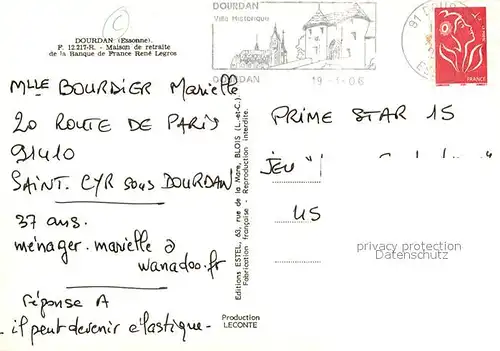 DOURDAN (Essonne).
P. 12.217-R. - Maison de retraite
de la Banque de France René Legros
DOURDAN
Ville Historique
DOURDAN
19-1-06
91
Mlle BOURDIER Marielle
20 ROUTE DE PARIS
91410
SAINT. CYR sous DOURDAN
37 ans.
ménager.marielle @
wanadoo.fr
réponse A
- il peut devenir élastique -
Editions ESTEL, 63, rue de la Mare, BLOIS (L.-et-C.)
Fabrication française - Reproduction interdite.
Production
LECONTE
PRIME STAR 15
JEU
US
privacy protection
Datenschutz